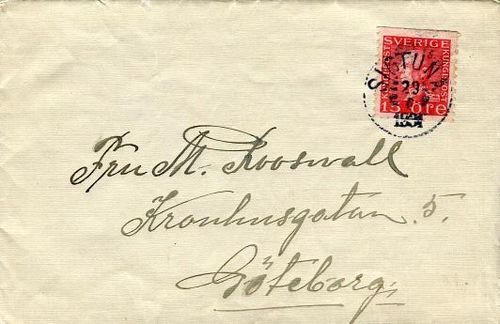 SVERIGE
KUNGL. POST
15 ÖRE
SIGTUNA
29
Fru M. Rooswall
Kronhusgatan 5.
Göteborg.